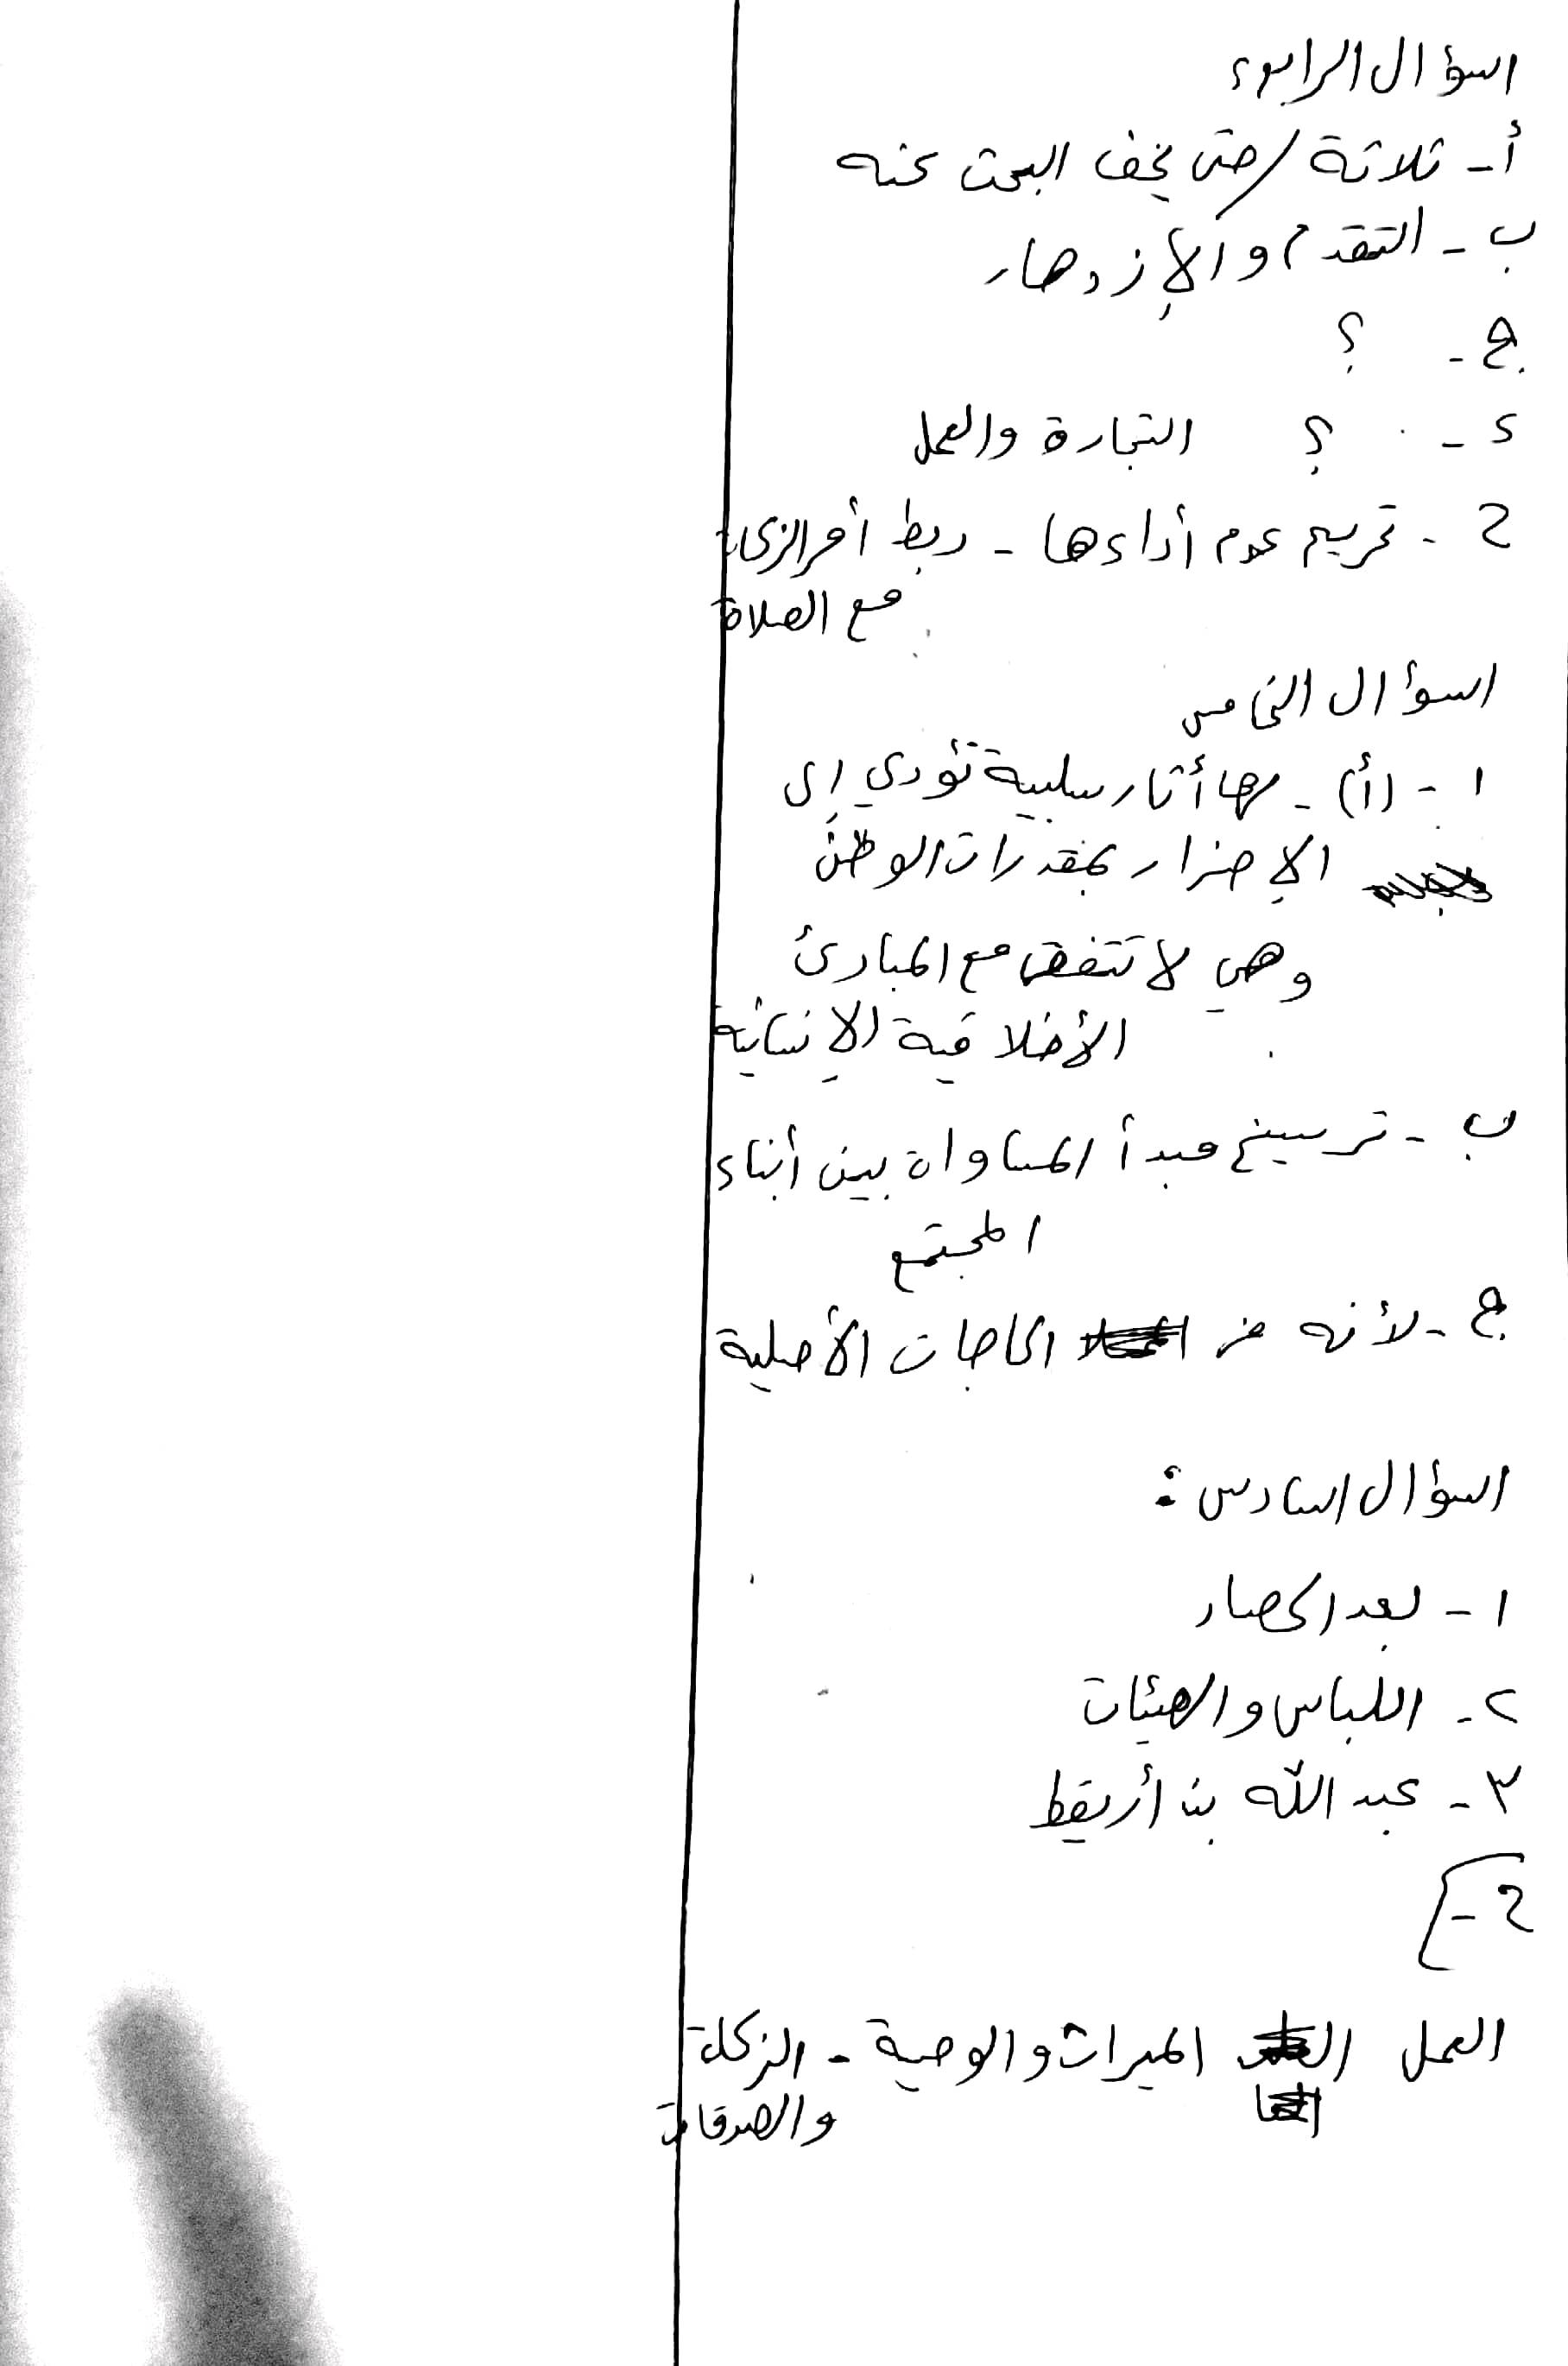 السؤال الرابع
أ - ثلاثة / حتى يخف البحث عنه
ب - التقدم والإزدهار
ج - ؟
د - ؟ التجارة والعمل
2 - تحريم عدم أداءها - ربط أمر الزكاة
مع الصلاة
السؤال الخامس
١ - (أ) - لها أثار سلبية تؤدي إلى
الإضرار بمقدرات الوطن
وهي لا تتفق مع المبادئ
الأخلاقية الإنسانية
ب - ترسيخ مبدأ المساواة بين أبناء
المجتمع
ج - لأنه من الحاجات الأصلية
السؤال السادس :
١ - بعد الحصار
٢ - اللباس والهيئات
٣ - عبد الله بن أريقط
2 -
العمل الميراث والوصية - الزكاة
والصدقات